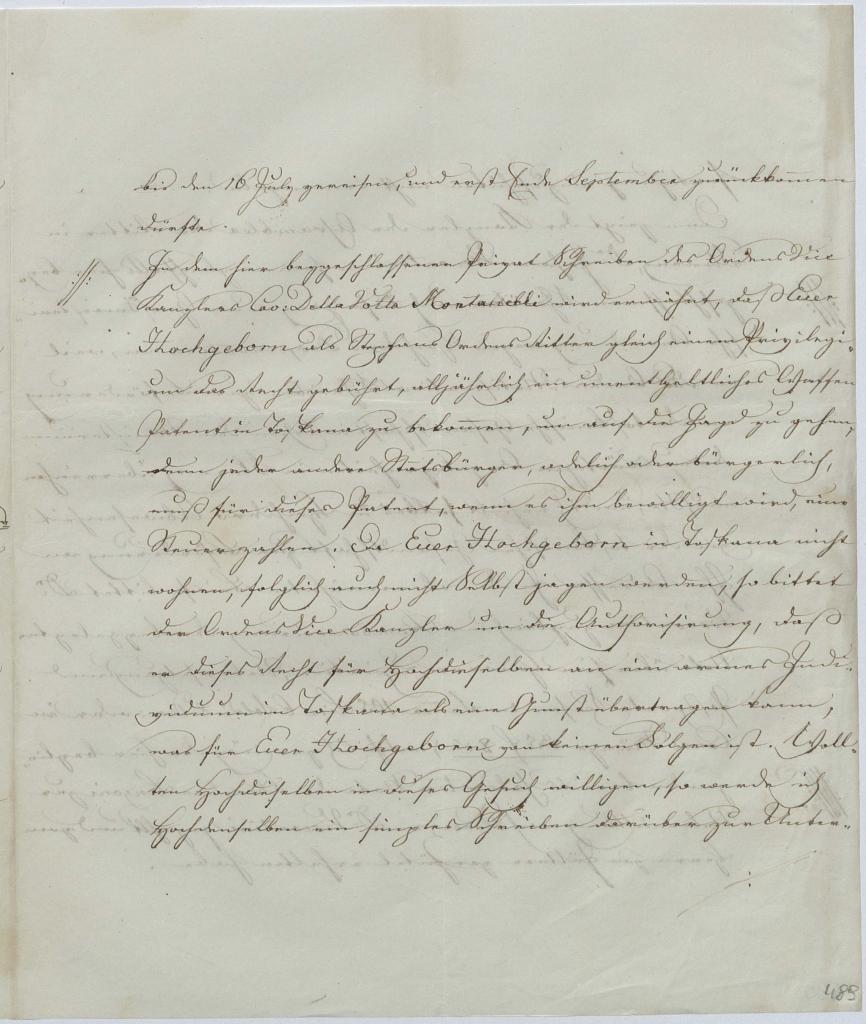 bis den 16 July verreisen, und erst Ende September zurückkommen
dürfte.
://: In dem hier beygeschlossenen Privat Schreiben des Ordens Vice
Kanzlers Cav: Della Volta Montanelli wird erwähnt, daß Euer
Hochgeborn als Stephans Ordens Ritter gleich einem Privilegi-
um das Recht gebührt, alljährlich ein unentgeltliches Waffen
Patent in Toskana zu bekommen, um auf die Jagd zu gehen,
denn jeder andere Statsbürger, adelich oder bürgerlich,
muß für dieses Patent, wenn es ihm bewilligt wird, eine
Steuer zahlen. Da Euer Hochgeborn in Toskana nicht
wohnen, folglich auch nicht Selbst jagen werden, so bittet
der Ordens Vice-Kanzler um die Authorisirung, daß
er dieses Recht für Hochdieselben an ein armes Indi-
viduum in Toskana als eine Gunst übertragen kann,
was für Euer Hochgeborn von keinen Folgen ist. Woll-
ten Hochdieselben in dieses Gesuch willigen, so werde ich
Hochdenselben ein simples Schreiben darüber zur Unter-
489